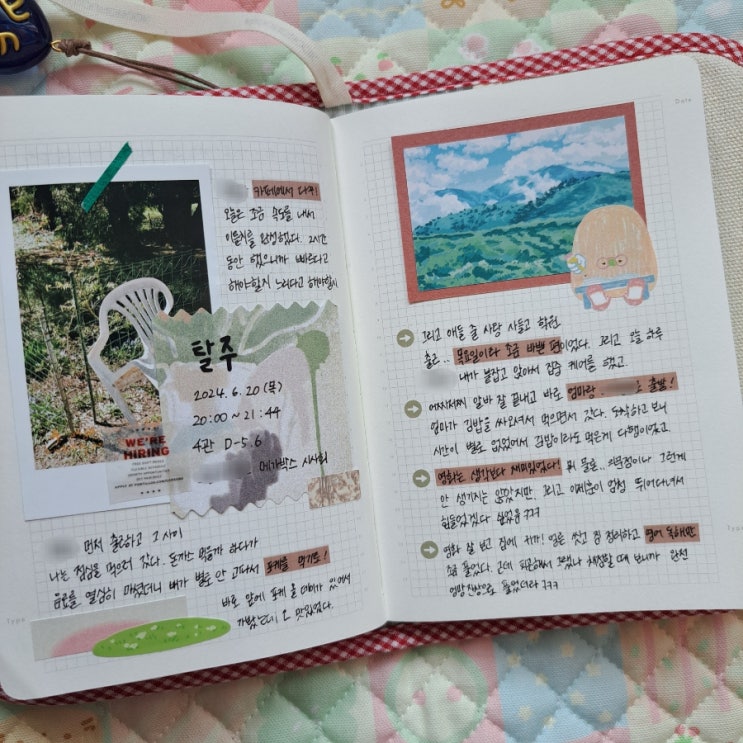 카페에서 다꾸!
오늘은 조금 속도를 내서
이틀치를 완성했다. 2시간
동안 했으니까 빠르다고
해야할지 느리다고 해야할지
탈주
2024. 6. 20 (목)
20:00 ~ 21:44
4관 D-5.6
메가박스 시사회
WE'RE
HIRING
먼저 출근하고 그 사이
나는 점심을 먹으러 갔다. 돈까스 먹을까 하다가
음료를 열심히 마셨더니 배가 별로 안 고파서 포케를 먹기로!
바로 앞에 포케 올데이가 있어서
맛있었다.
Type
Date
그리고 애들 줄 사탕 사들고 학원
출근.. 목요일이라 조금 바쁜 편이었다. 그리고 오늘 하루
내가 붙잡고 앉아서 집중 케어를 했고.
어찌저찌 알바 잘 끝내고 바로 엄마랑 출발!
엄마가 김밥을 싸와서 먹으면서 갔다. 도착하고 보니
시간이 별로 없었어서 김밥이라도 먹은게 다행이었고.
영화는 생각보다 재미있었다! 뭐 물론.. 의문점이나 그런게
안 생기지는 않았지만. 그리고 이제훈이 엄청 뛰어다녀서
힘들었겠다 싶었음 ㅋㅋㅋ
영화 잘 보고 집에 와가지 얼른 씻고 짐 정리하고 영어 독해만
조금 풀었다. 근데 피곤해서 그랬나 채점할 때 보니까 완전
엉망진창으로 풀었더라 ㅋㅋㅋ